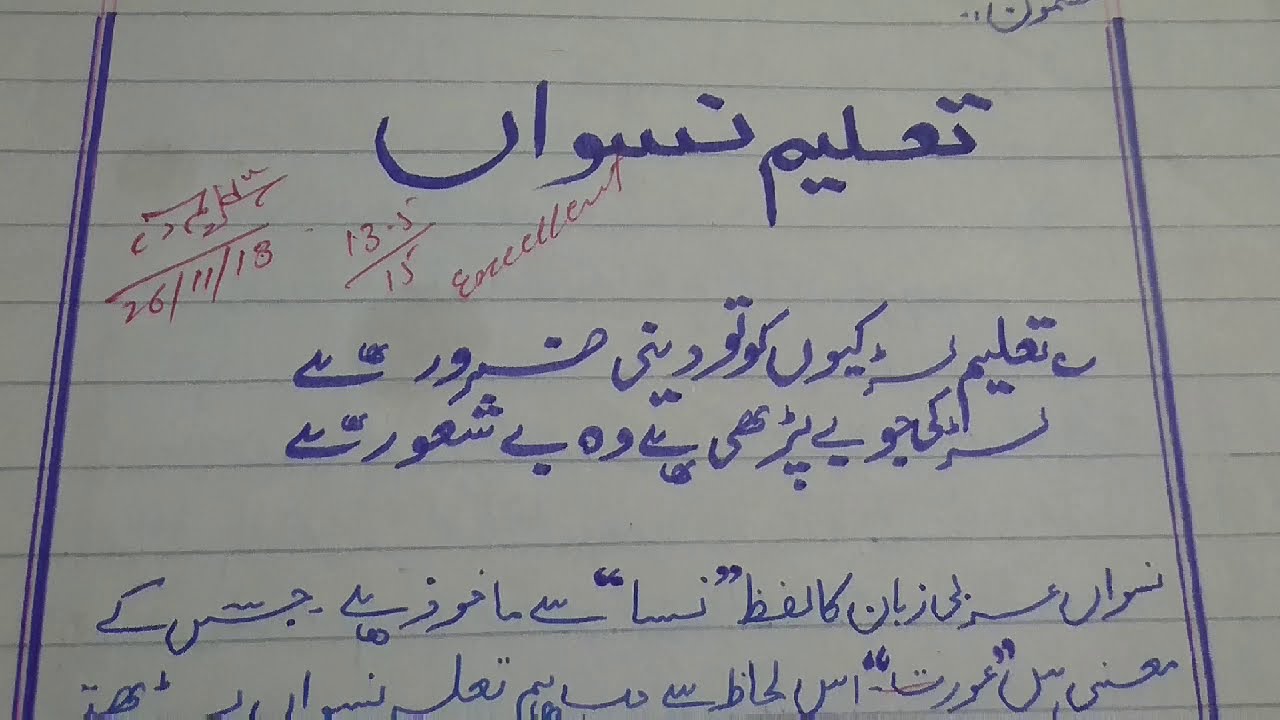 مضمون:
تعلیم نسواں
13.5/15
Excellent
26/11/18
تعلیم لڑکیوں کو تو دینی ضرور ہے
لڑکی جو بے پڑھی ہے وہ بے شعور ہے
نسواں عربی زبان کا لفظ "نسا" سے ماخوذ ہے۔ جس کے
معنی ہیں "عورت" اس لحاظ سے جب ہم تعلیم نسواں پر